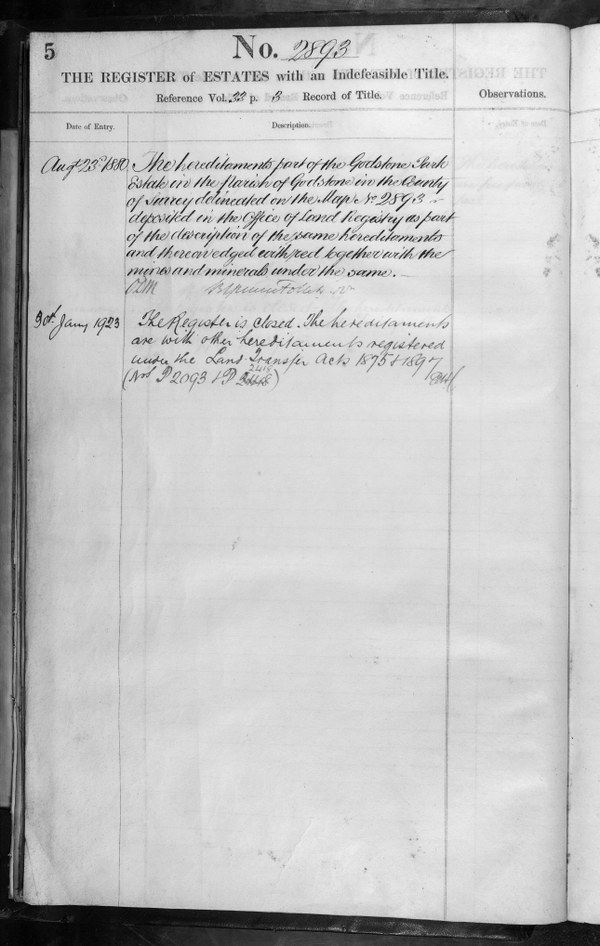 5
No. 2893
THE REGISTER of ESTATES with an Indefeasible Title.
Reference Vol. 22 p. 3 Record of Title.
Observations.
Date of Entry.
Description.
Augt 23d 1880.
The hereditaments part of the Godstone Park
Estate in the Parish of Godstone in the County
of Surrey delineated on the Map No 2893
deposited in the Office of Land Registry as part
of the description of the same hereditaments
and thereon edged with red together with the
mines and minerals under the same.
30th Jany 1923
The Register is closed. The hereditaments
are with other hereditaments registered
under the Land Transfer Acts 1875 & 1897
(Nos P 2093 & P 2418)